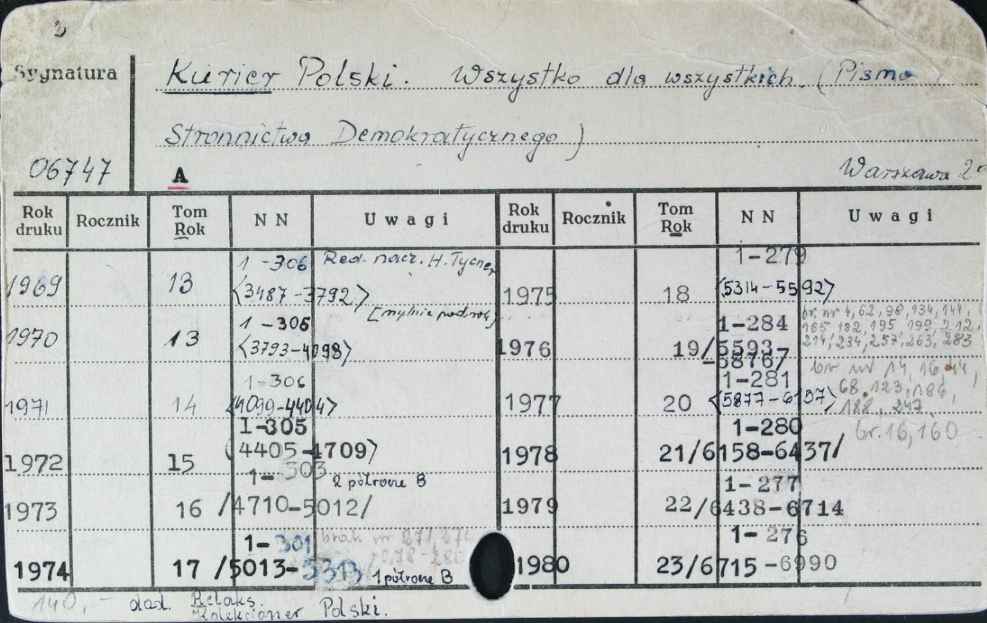 Sygnatura
Kurier Polski. Wszystko dla wszystkich. (Pismo
Stronnictwa Demokratycznego)
06747
A
Warszawa
Rok druku Rocznik Tom Rok NN Uwagi Rok druku Rocznik Tom Rok NN Uwagi
1969 13 1-306 <3487-3792> Red. nacz. H. Tycner
1970 13 1-306 <3793-4098> [mylnie podrok]
1971 14 1-306 <4099-4404>
1972 15 1-305 (4405-4709)
1973 16 1-303 /4710-5012/ 2 półrocze B
1974 17 1-301 /5013-5313 1 półrocze B
1975 18 1-279 <5314-5592>
1976 19 1-284 /5593-5876/ br. nr 4, 62, 98, 134, 141,
165, 182, 195, 199, 212,
214, 234, 257, 263, 283
1977 20 1-281 <5877-6157> br nr 14, 16
68, 123, 186,
188, 247
1978 21 1-280 /6158-6437/ br. 16, 160
1979 22 1-277 /6438-6714
1980 23 1-276 /6715-6990
140,- dod. Relaks
Kolekcjoner Polski.